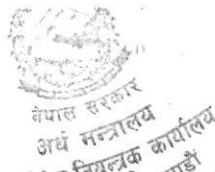 नेपाल सरकार
अर्थ मन्त्रालय
नियन्त्रक कार्यालय